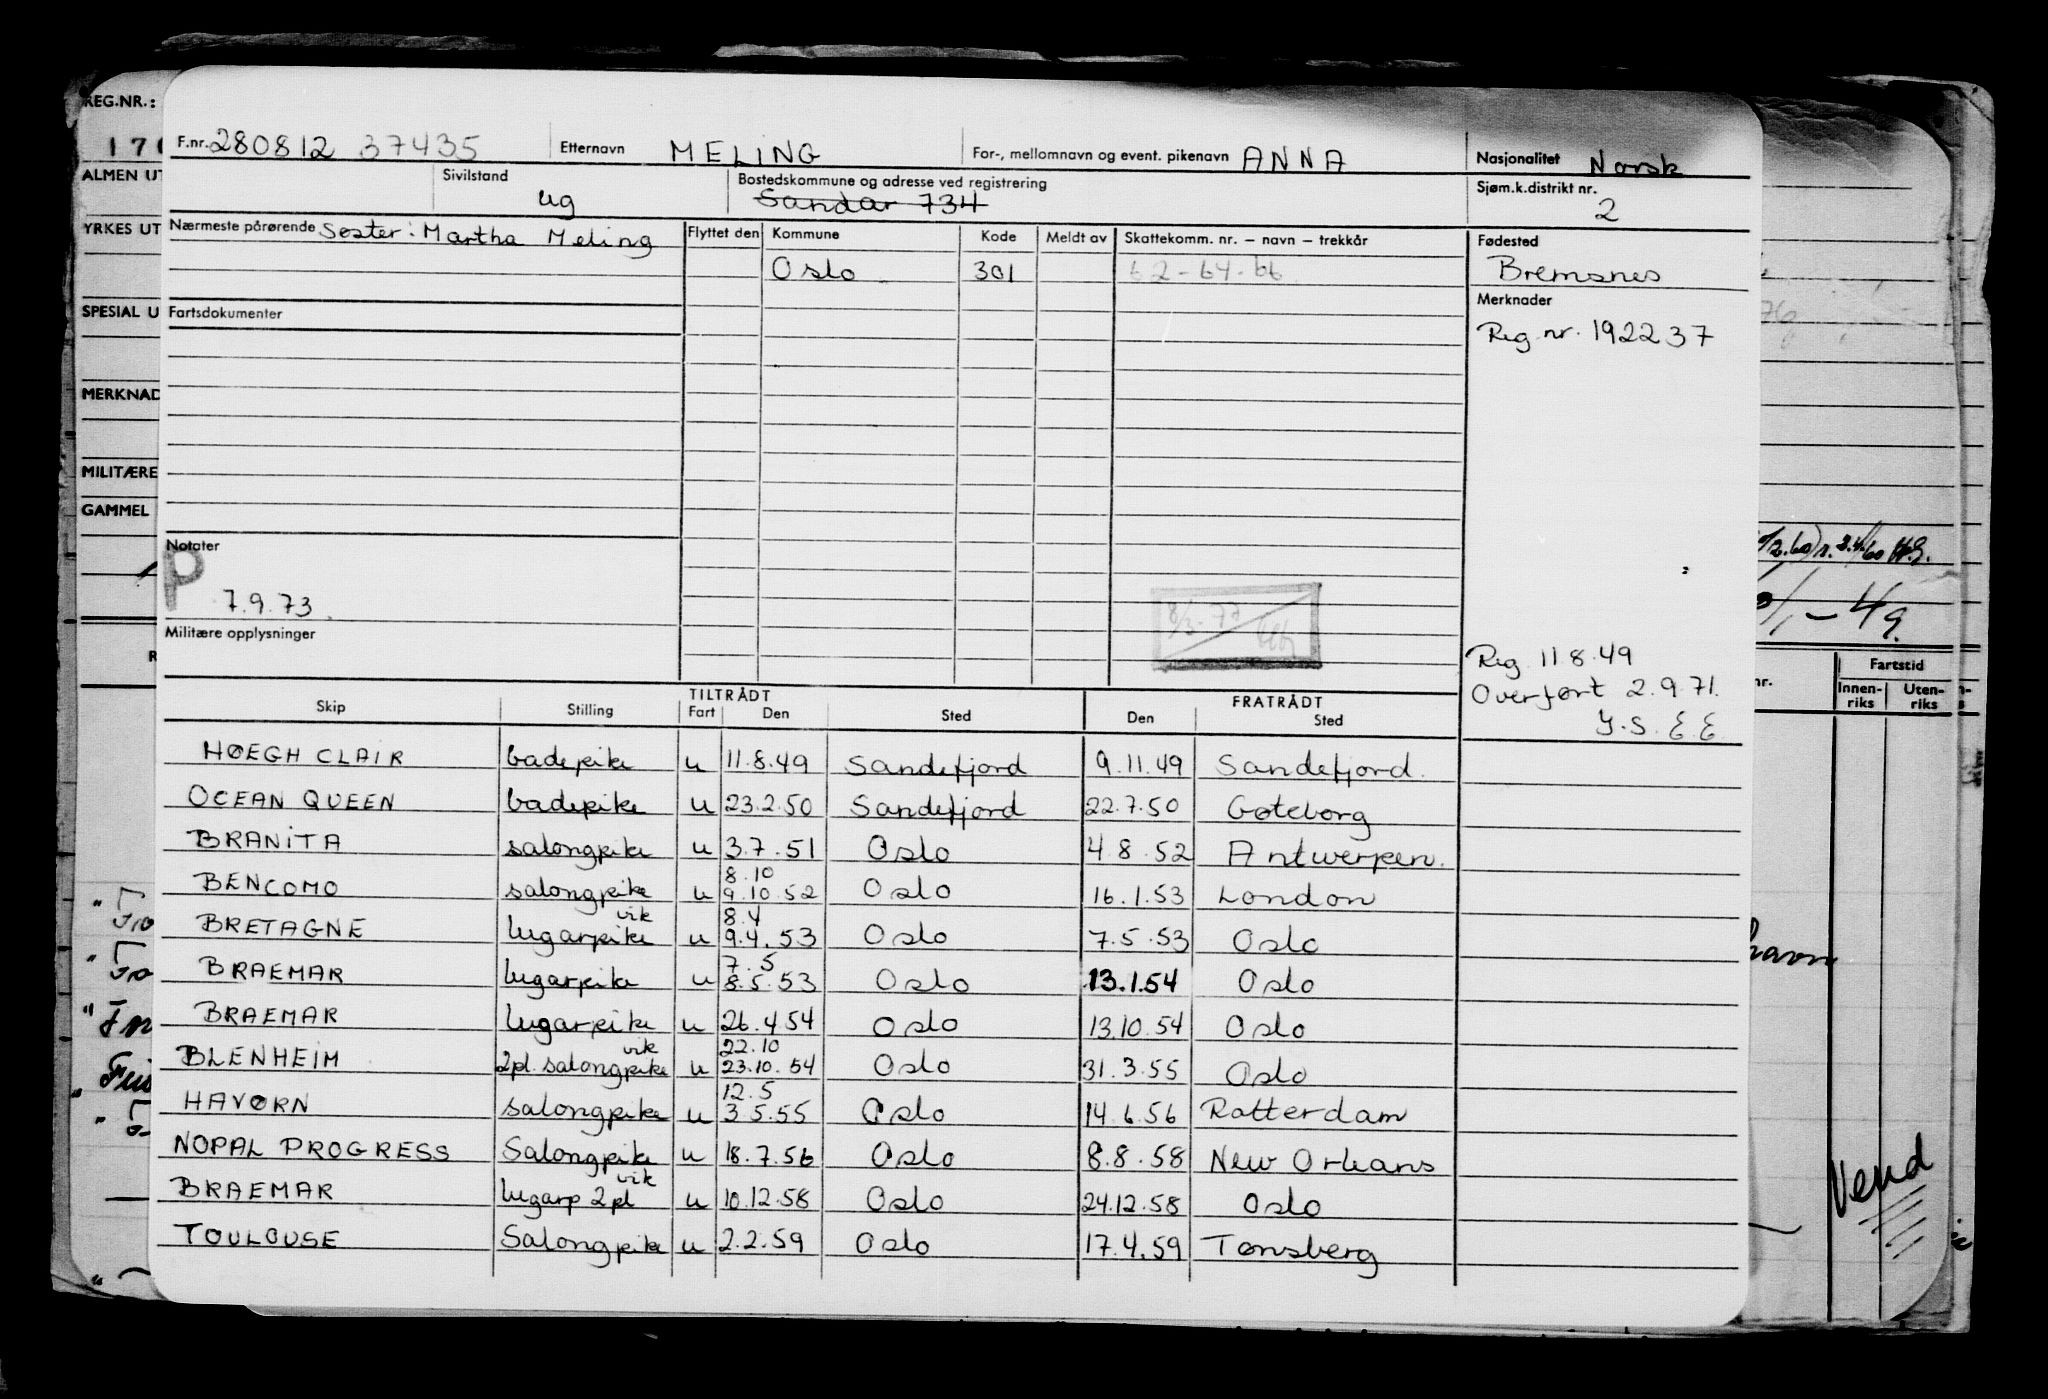 REG.NR.:
170
ALMEN UT
YRKES UT
SPESIAL U
MERKNAD
MILITÆRE
GAMMEL
F.nr. 280812 37435 Etternavn MELING For-, mellomnavn og event. pikenavn ANNA Nasjonalitet Norsk
Sivilstand ug Bostedskommune og adresse ved registrering Sandar 734 Sjøm.k.distrikt nr. 2
Nærmeste pårørende Søster: Martha Meling Flyttet den Kommune Kode Meldt av Skattekomm. nr. – navn – trekkår Fødested
Oslo 301 62-64-66 Bremsnes
Fartsdokumenter Merknader
Reg nr. 192237
Notater
P 7.9.73.
8/3-77
Militære opplysninger
Reg. 11.8.49
Overført 2.9.71.
Y.S. E.E.
TILTRÅDT FRATRÅDT
Skip Stilling Fart Den Sted Den Sted
HØEGH CLAIR badepike u 11.8.49 Sandefjord 9.11.49 Sandefjord.
OCEAN QUEEN badepike u 23.2.50 Sandefjord 22.7.50 Gøteborg
BRANITA salongpike u 3.7.51 Oslo 4.8.52 Antwerpen.
8.10
BENCOMO salongpike u 9.10.52 Oslo 16.1.53 London
vik 8.4
BRETAGNE lugarpike u 9.4.53 Oslo 7.5.53 Oslo
7.5
BRAEMAR lugarpike u 8.5.53 Oslo 13.1.54 Oslo
BRAEMAR lugarpike u 26.4.54 Oslo 13.10.54 Oslo
vik 22.10
BLENHEIM 2pl. salongpike u 23.10.54 Oslo 31.3.55 Oslo
12.5
HAVØRN salongpike u 3.5.55 Oslo 14.6.56 Rotterdam
NOPAL PROGRESS Salongpike u 18.7.56 Oslo 8.8.58 New Orleans
vik
BRAEMAR lugarp 2pl u 10.12.58 Oslo 24.12.58 Oslo
TOULOUSE Salongpike u 2.2.59 Oslo 17.4.59 Tønsberg
nr. Fartstid
Innen-riks Uten-riks
havn
Vend